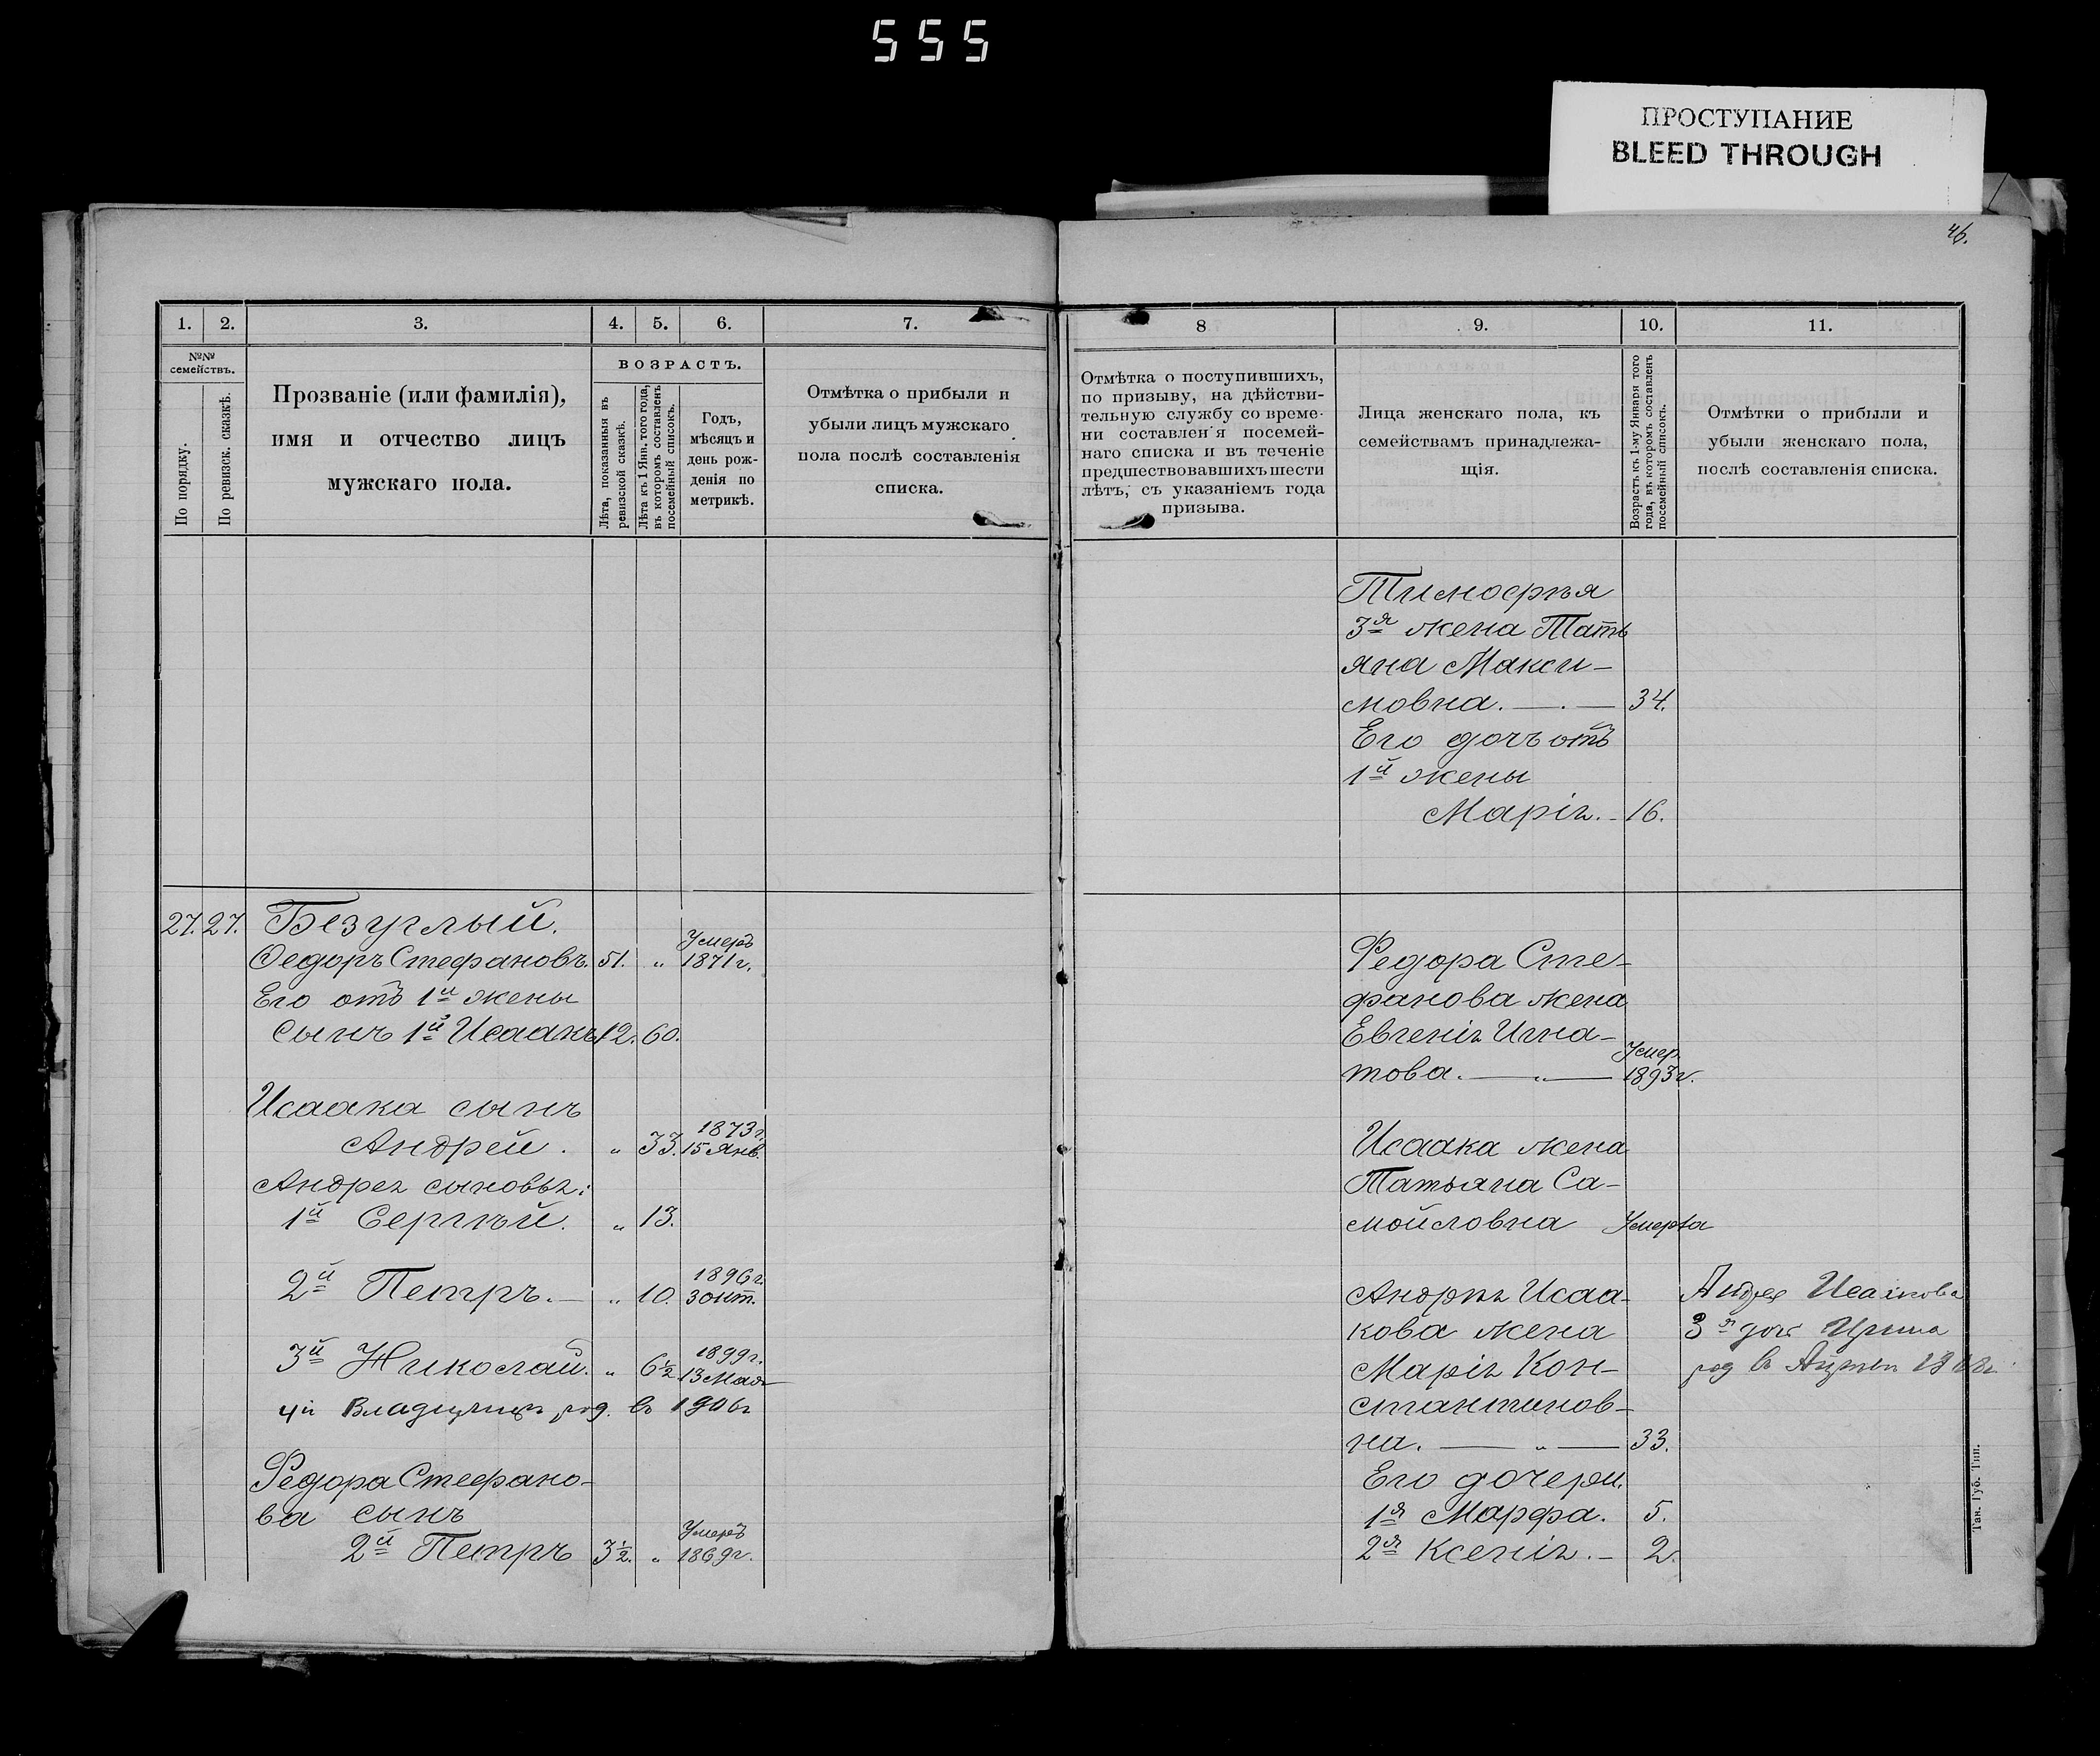 555
ПРОСТУПАНИЕ
BLEED THROUGH
46.
1. 2. 3. 4. 5. 6. 7.
№№ семействъ.
По порядку.
По ревизск. сказкѣ.
Прозваніе (или фамилія),
имя и отчество лицъ
мужскаго пола.
ВОЗРАСТЪ.
Лѣта, показанныя въ
ревизской сказкѣ.
Лѣта къ 1 Янв. того года,
въ которомъ составленъ
посемейный списокъ.
Годъ,
мѣсяцъ и
день рож-
денія по
метрикѣ.
Отмѣтка о прибыли и
убыли лицъ мужскаго
пола послѣ составленія
списка.
27. 27. Безуглый.
Ѳедоръ Стефановъ. 51. „ Умеръ 1871 г.
Его отъ 1й жены
сынъ 1й Исаакъ 12. 60.
Исаака сынъ
Андрей. „ 33. 1873 г. 15 Янв.
Андрея сыновья:
1й Сергѣй. „ 13.
2й Петръ. — „ 10. 1896 г. 3 окт.
3й Николай. „ 6½ 1899 г. 13 Мая
4й Владимиръ род. въ 1906 г
Федора Стефано-
ва сынъ
2й Петръ 3½. „ Умеръ 1869 г.
8 9. 10. 11.
Отмѣтка о поступившихъ,
по призыву, на дѣйстви-
тельную службу со време-
ни составленія посемей-
наго списка и въ теченіе
предшествовавшихъ шести
лѣтъ, съ указаніемъ года
призыва.
Лица женскаго пола, къ
семействамъ принадлежа-
щія.
Возрастъ къ 1-му Января того
года, въ которомъ составленъ
посемейный списокъ.
Отмѣтки о прибыли и
убыли женскаго пола,
послѣ составленія списка.
Тимофѣя
3я жена Тать
яна Макси-
мовна. — . — 34.
Его дочь отъ
1й жены
Марія. - 16.
Федора Сте-
фанова жена
Евгенія Игна-
това. — „ — Умер. 1893 г.
Исаака жена
Татьяна Са-
мойловна Умерла
Андрея Исаа-
кова жена
Марія Кон-
стантинов-
на. — „ — 33.
Его дочери.
1я Марфа. 5.
2я Ксенія. - 2.
Андрея Исаакова
3я дочь Ирина
род въ Апрѣлѣ
Тав. Губ. Тип.